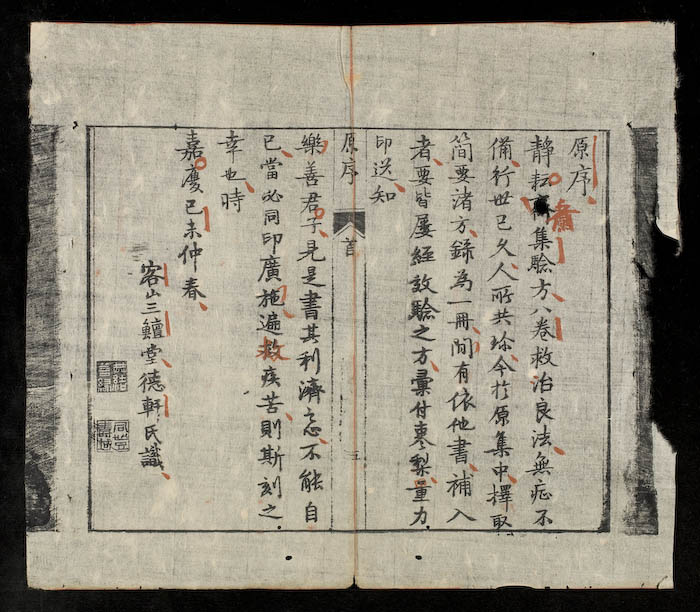 原序
静耘齋集驗方八卷救治良法無症不
備行世已久人所共珎今於原集中擇取
簡要諸方錄為一冊間有依他書補入
者要皆屢經效驗之方彙付棗梨量力
印送知
原序 首 五
樂善君子見是書其利濟之念不能自
已當必同印廣施遍救疾苦則斯刻之
幸也時
嘉慶己未仲春
客山三鱣堂德軒氏識